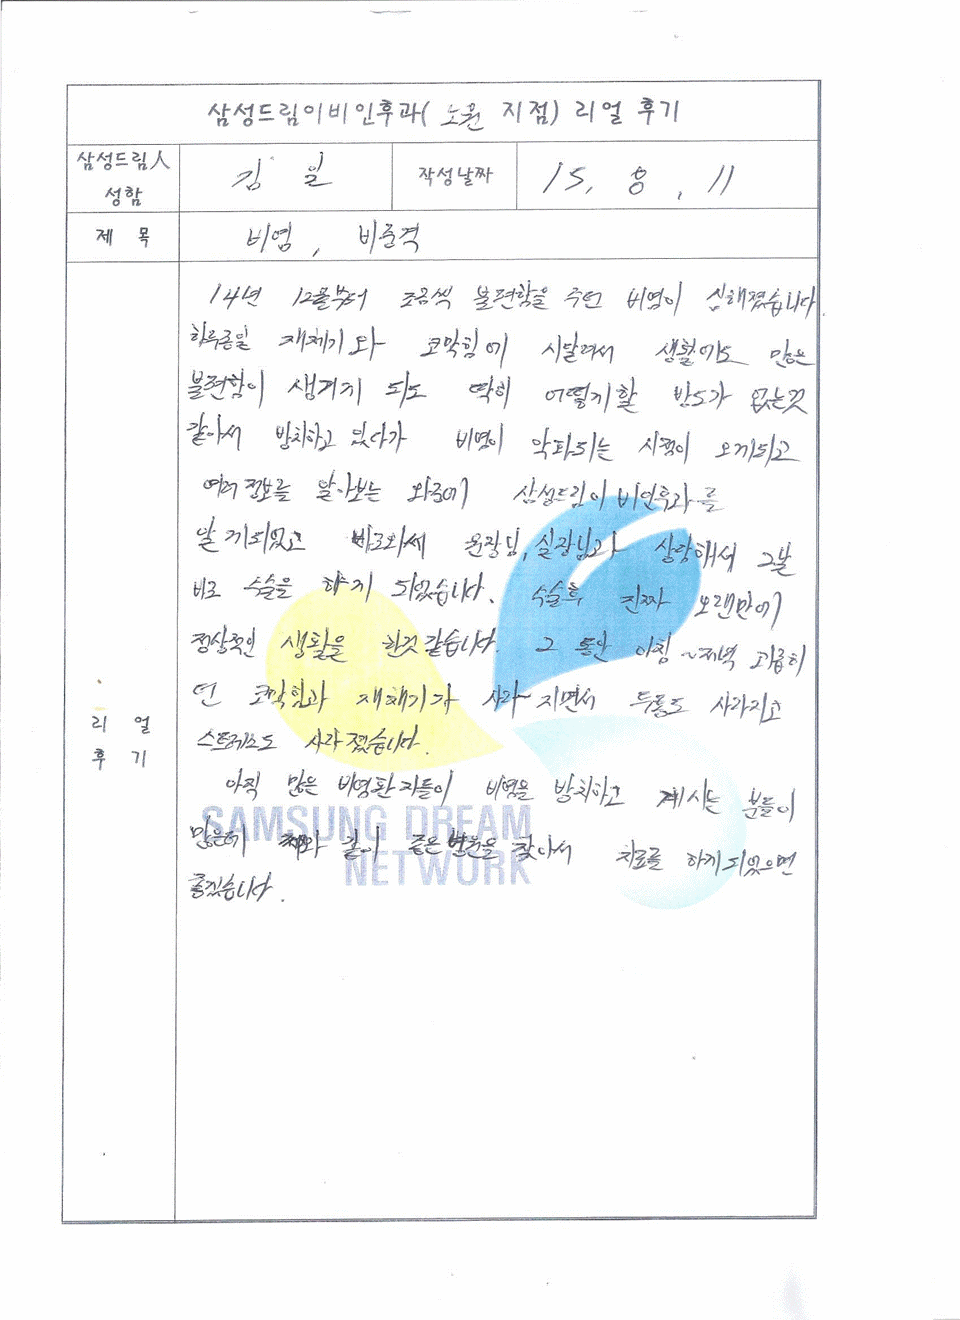 삼성드림이비인후과( 노원 지점) 리얼 후기
삼성드림人 성함
김 일
작성날짜
15. 8. 11
제 목
비염, 비중격
리 얼 후 기
14년 12월부터 조금씩 불편함을 주던 비염이 심해졌습니다.
하루종일 재채기와 코막힘에 시달려서 생활에도 많은
불편함이 생기게 되도 딱히 어떻게할 반도가 없는것
같아서 방치하고 있다가 비염이 악화되는 시점이 오게되고
여러 정보를 알아보는 와중에 삼성드림이비인후과를
알게되었고 바로와서 원장님, 실장님과 상담해서 그날
바로 수술을 하게 되었습니다. 수술후 진짜 오랜만에
정상적인 생활을 한것 같습니다. 그 동안 아침~저녁 괴롭히
던 코막힘과 재채기가 사라~지면서 두통도 사라지고
스트레스도 사라졌습니다.
아직 많은 비염환자들이 비염을 방치하고 계시는 분들이
많은데 저와 같이 좋은병원을 찾아서 치료를 하게되었으면
좋겠습니다.
SAMSUNG DREAM
NETWORK